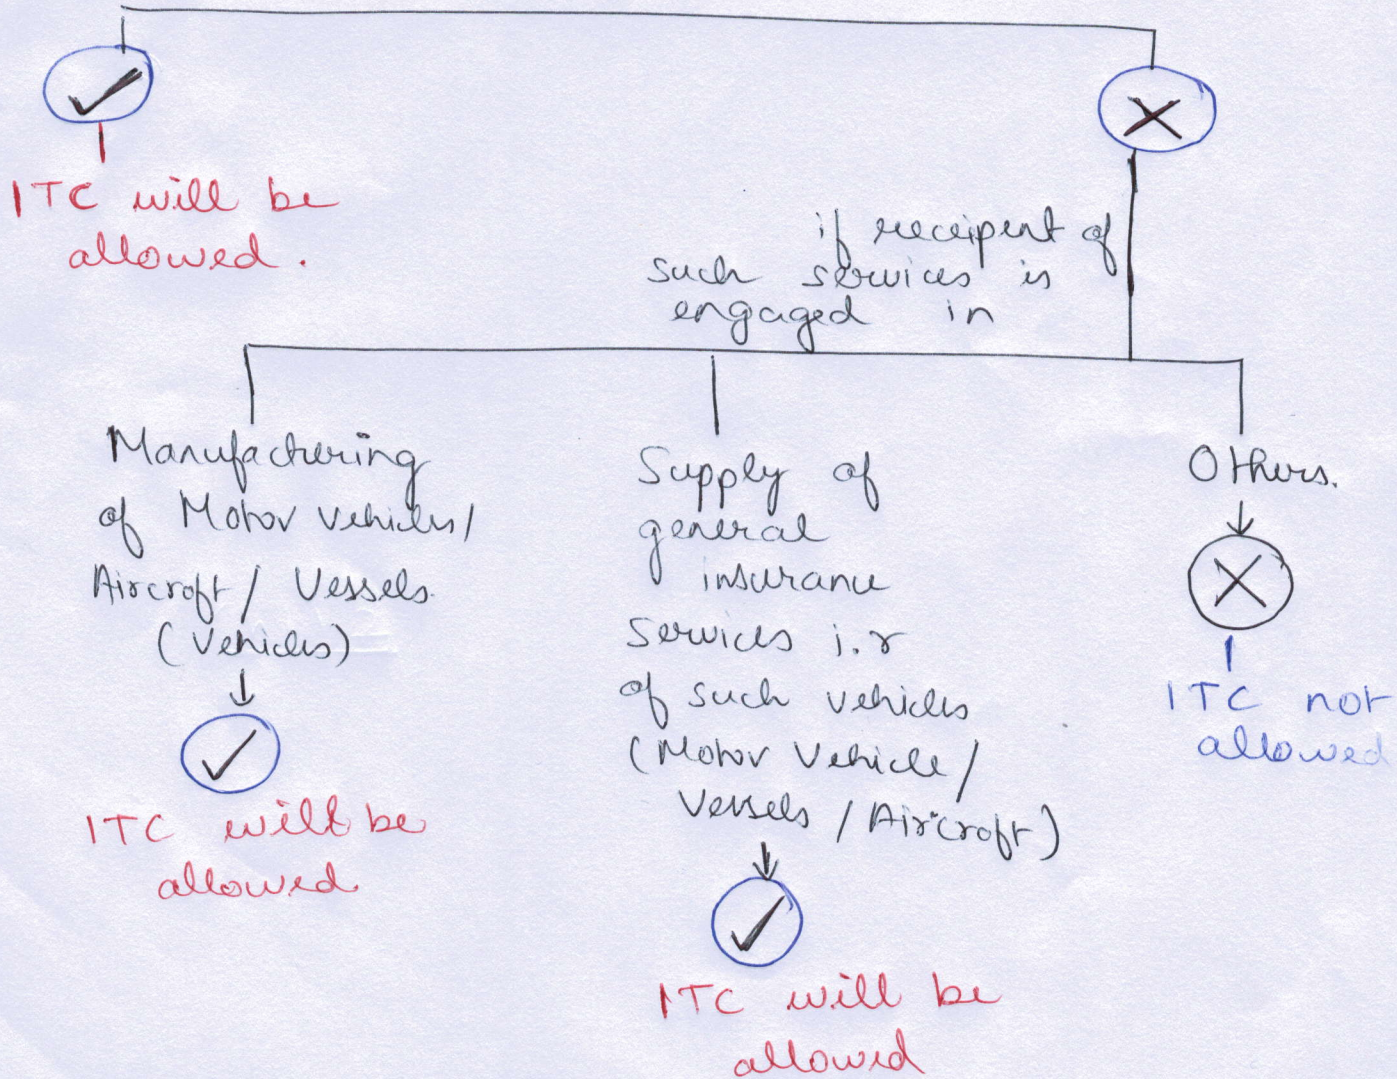 ITC will be
allowed.
if receipent of
such services is
engaged in
Manufacturing
of Motor vehicles/
Aircroft / Vessels.
(Vehicles)
ITC will be
allowed
Supply of
general
insurance
Services i.r
of such vehicles
(Motor Vehicle/
Vessels / Aircroft)
ITC will be
allowed
Others.
ITC not
allowed